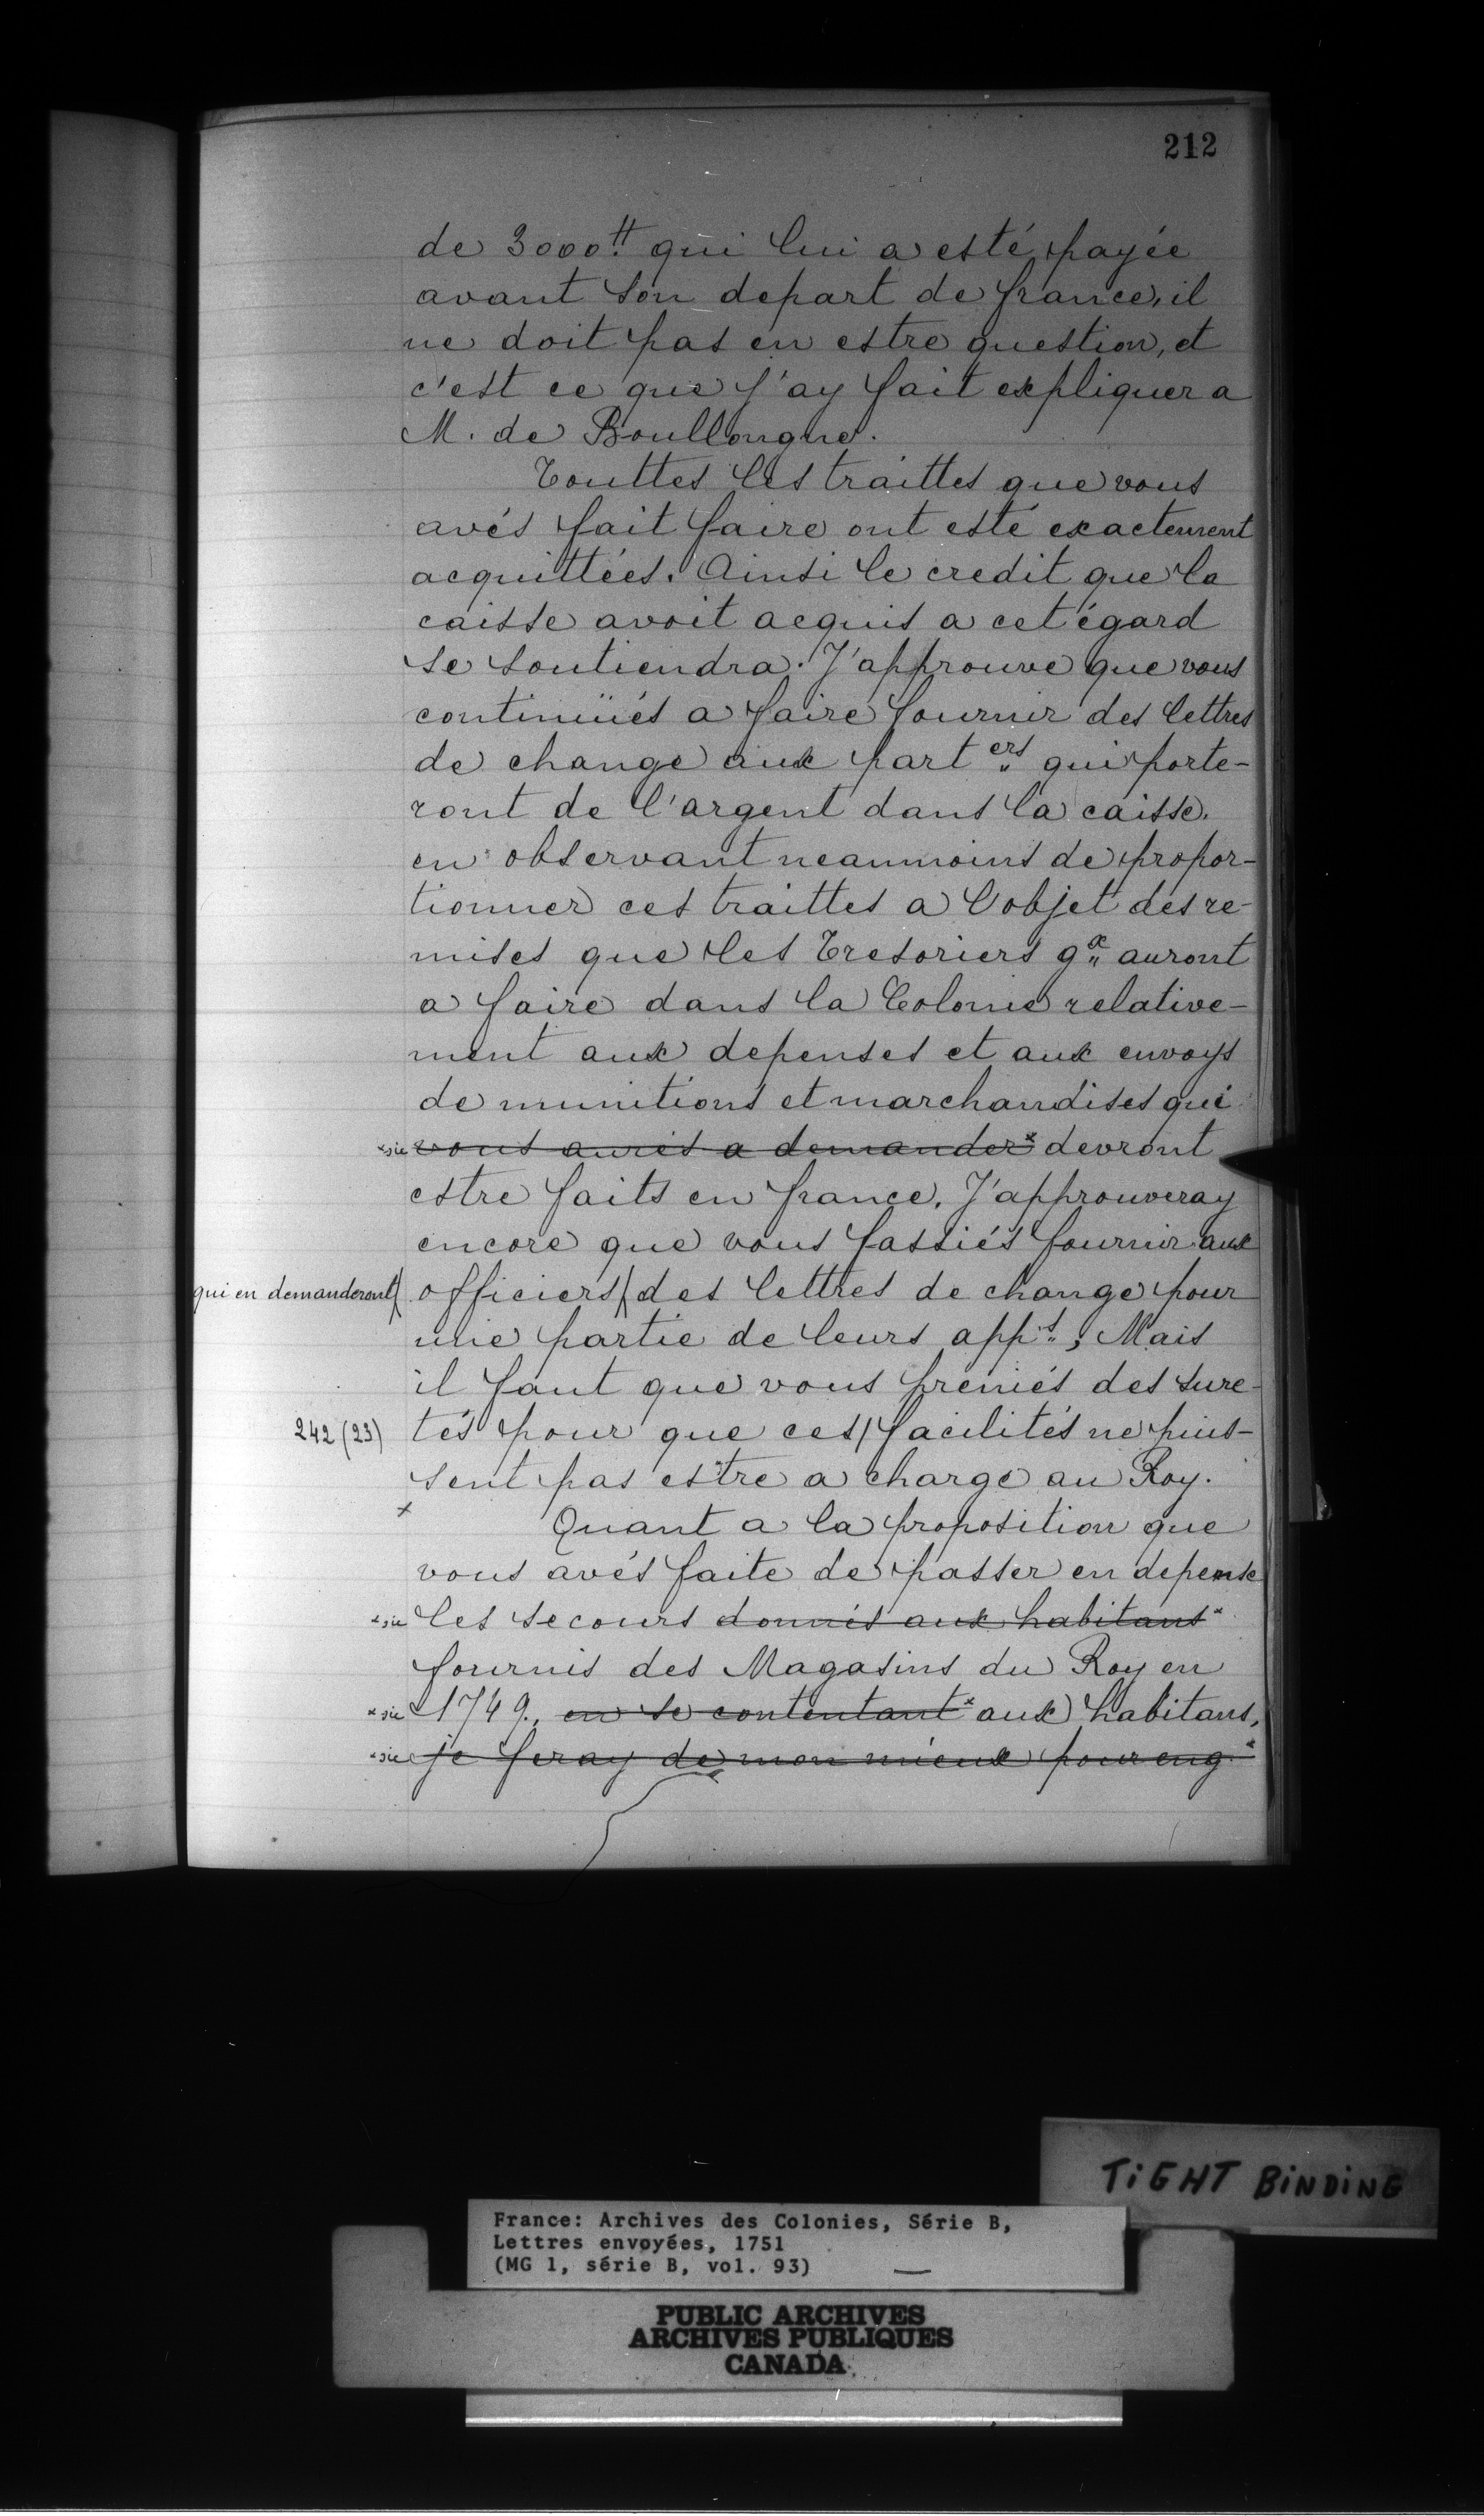 212
de 3000.tt qui lui a esté payée
avant son depart de france, il
ne doit pas en estre question, et
c'est ce que j'ay fait expliquer a
M. de Boullongne.
Touttes les traittes que vous
avés fait faire ont esté exactement
acquittées. Ainsi le credit que la
caisse avoit acquis a cet égard
se soutiendra. J'approuve que vous
continüés a faire fournir des lettres
de change aux part.ers qui porte-
ront de l'argent dans la caisse.
en observant neanmoins de propor-
tionner ces traittes a l'objet des re-
mises que les Tresoriers g.x auront
a faire dans la Colonie relative-
ment aux depenses et aux envoys
de munitions et marchandises qui
*sic vous aurés a demander* devront
estre faits en france. J'approuveray
encore que vous fassiés fournir aux
qui en demanderont/ officiers/ des lettres de change pour
une partie de leurs app.ts, Mais
il faut que vous preniés des sure-
242 (23) tés pour que ces/ facilités ne puis-
sent pas estre a charge au Roy.
x Quant a la proposition que
vous avés faite de passer en depense
*sic les secours donnés aux habitans*
fournis des Magasins du Roy en
*sic 1749., en se contentant* aux habitans,
*sic je feray de mon mieux pour eng*
TiGHT BiNDiNG
France: Archives des Colonies, Série B,
Lettres envoyées, 1751
(MG 1, série B, vol. 93)
PUBLIC ARCHIVES
ARCHIVES PUBLIQUES
CANADA